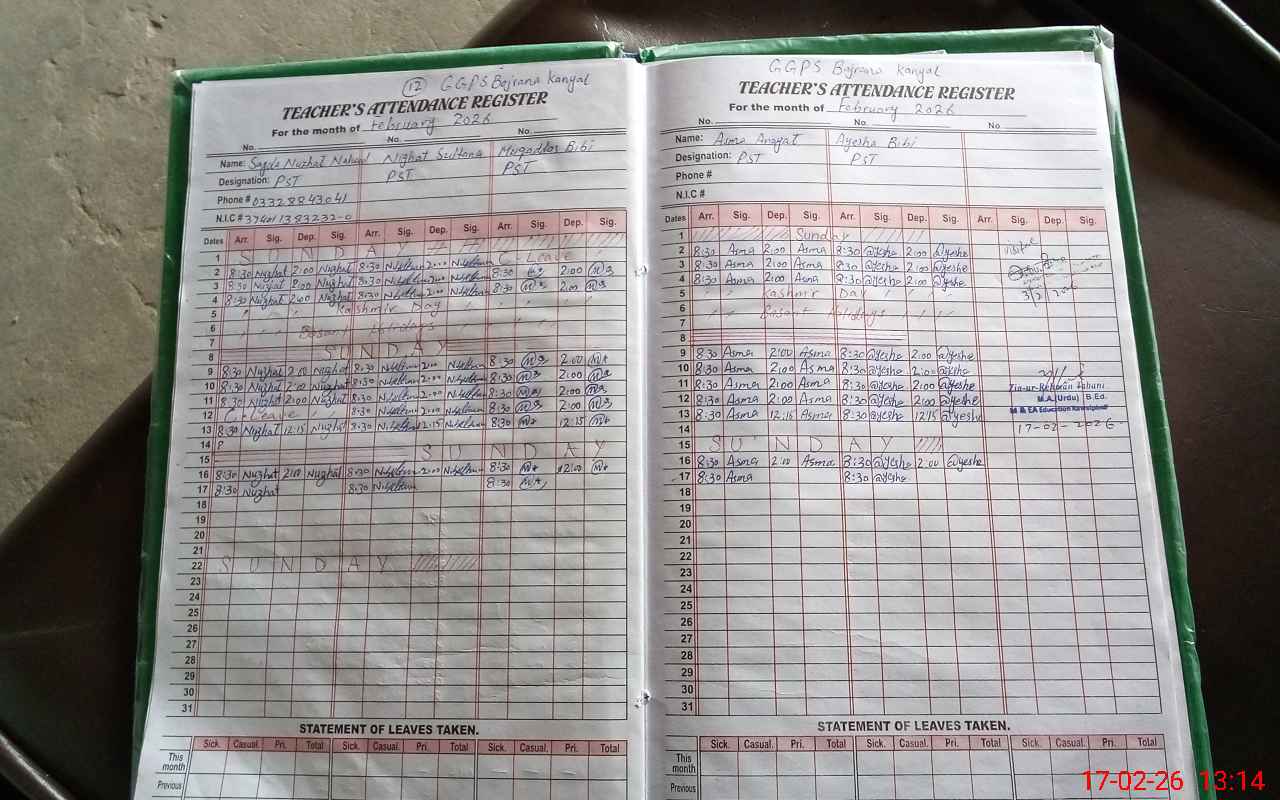 (12) GGPS Bojrana Kanyal
TEACHER'S ATTENDANCE REGISTER
For the month of February 2026
No. No. No.
Name: Nuzhat Nighat Sultana Bibi
Designation: PST PST PST
Phone # 03328843041
N.I.C #
Dates Arr. Sig. Dep. Sig. Arr. Sig. Dep. Sig. Arr. Sig. Dep. Sig.
1 SUNDAY
2 8:30 Nuzhat 2:00 Nuzhat 8:30 2:00 8:30 2:00
3 8:30 Nuzhat 2:00 Nuzhat 8:30 2:00 8:30 2:00
4 8:30 Nuzhat 2:00 Nuzhat 8:30 2:00 8:30 2:00
5 Kashmir Day
6 Basant Holidays
7
8 SUNDAY
9 8:30 Nuzhat 2:00 Nuzhat 8:30 2:00 8:30 2:00
10 8:30 Nuzhat 2:00 Nuzhat 8:30 2:00 8:30 2:00
11 8:30 Nuzhat 2:00 Nuzhat 8:30 2:00 8:30 2:00
12 Leave 8:30 2:00 8:30 2:00
13 8:30 Nuzhat 12:15 Nuzhat 8:30 12:15 8:30 12:15
14
15 SUNDAY
16 8:30 Nuzhat 2:00 Nuzhat 8:30 2:00 8:30 2:00
17 8:30 Nuzhat 8:30 8:30
18
19
20
21
22 SUNDAY
23
24
25
26
27
28
29
30
31
STATEMENT OF LEAVES TAKEN.
Sick. Casual. Pri. Total Sick. Casual. Pri. Total Sick. Casual. Pri. Total
This month
Previous
GGPS Bojrana Kanyal
TEACHER'S ATTENDANCE REGISTER
For the month of February 2026
No. No. No.
Name: Asma Anayat Ayesha Bibi
Designation: PST PST
Phone #
N.I.C #
Dates Arr. Sig. Dep. Sig. Arr. Sig. Dep. Sig. Arr. Sig. Dep. Sig.
1 Sunday
2 8:30 Asma 2:00 Asma 8:30 @yeshe 2:00 @yeshe
3 8:30 Asma 2:00 Asma 8:30 @yeshe 2:00 @yeshe
4 8:30 Asma 2:00 Asma 8:30 @yeshe 2:00 @yeshe
5 Kashmir Day
6 Basant Holidays
7
8
9 8:30 Asma 2:00 Asma 8:30 @yeshe 2:00 @yeshe
10 8:30 Asma 2:00 Asma 8:30 @yeshe 2:00 @yeshe
11 8:30 Asma 2:00 Asma 8:30 @yeshe 2:00 @yeshe
12 8:30 Asma 2:00 Asma 8:30 @yeshe 2:00 @yeshe
13 8:30 Asma 12:15 Asma 8:30 @yeshe 12:15 @yeshe
14
15 SUNDAY
16 8:30 Asma 2:00 Asma 8:30 @yeshe 2:00 @yeshe
17 8:30 Asma 8:30 @yeshe
18
19
20
21
22
23
24
25
26
27
28
29
30
31
M.A. (Urdu) B.Ed.
M & EA Education Rawalpindi
17-02-2026
STATEMENT OF LEAVES TAKEN.
Sick. Casual. Pri. Total Sick. Casual. Pri. Total Sick. Casual. Pri. Total
This month
Previous
17-02-26 13:14